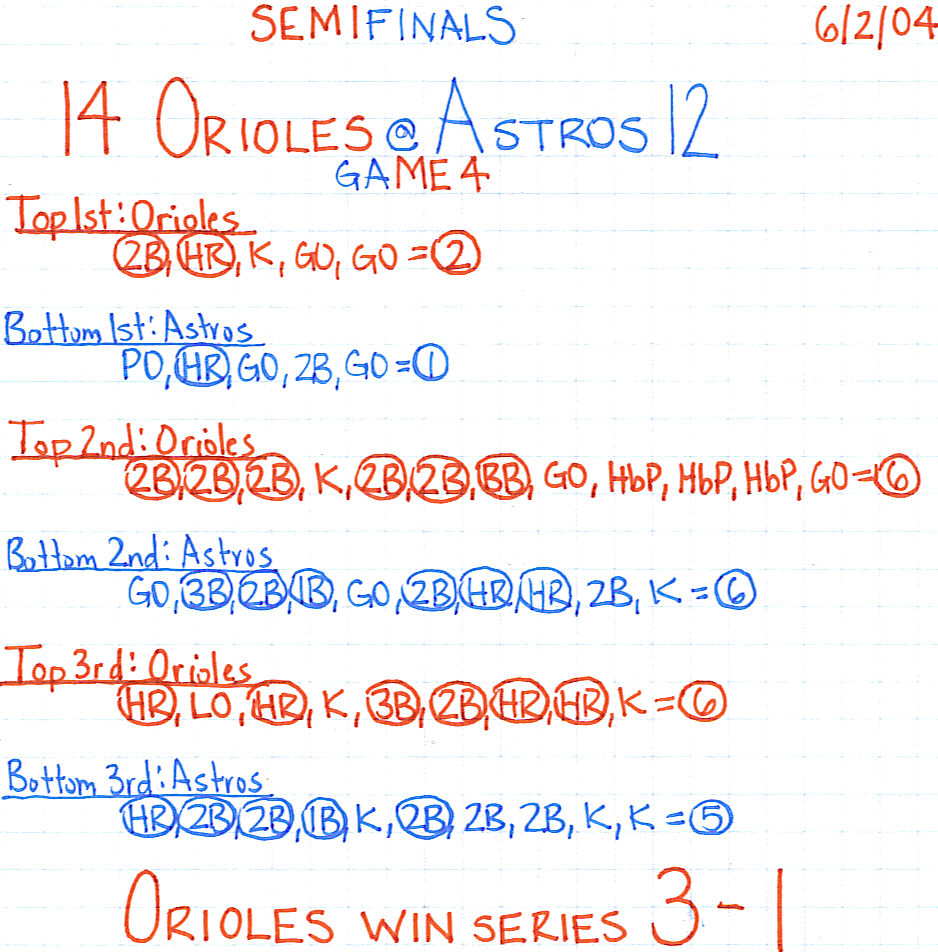 SEMIFINALS 6/2/04
14 ORIOLES @ ASTROS 12
GAME 4
Top 1st: Orioles
2B, HR, K, GO, GO = 2
Bottom 1st: Astros
PO, HR, GO, 2B, GO = 1
Top 2nd: Orioles
2B, 2B, 2B, K, 2B, 2B, BB, GO, HbP, HbP, HbP, GO = 6
Bottom 2nd: Astros
GO, 3B, 2B, 1B, GO, 2B, HR, HR, 2B, K = 6
Top 3rd: Orioles
HR, LO, HR, K, 3B, 2B, HR, HR, K = 6
Bottom 3rd: Astros
HR, 2B, 2B, 1B, K, 2B, 2B, 2B, K, K = 5
ORIOLES WIN SERIES 3-1